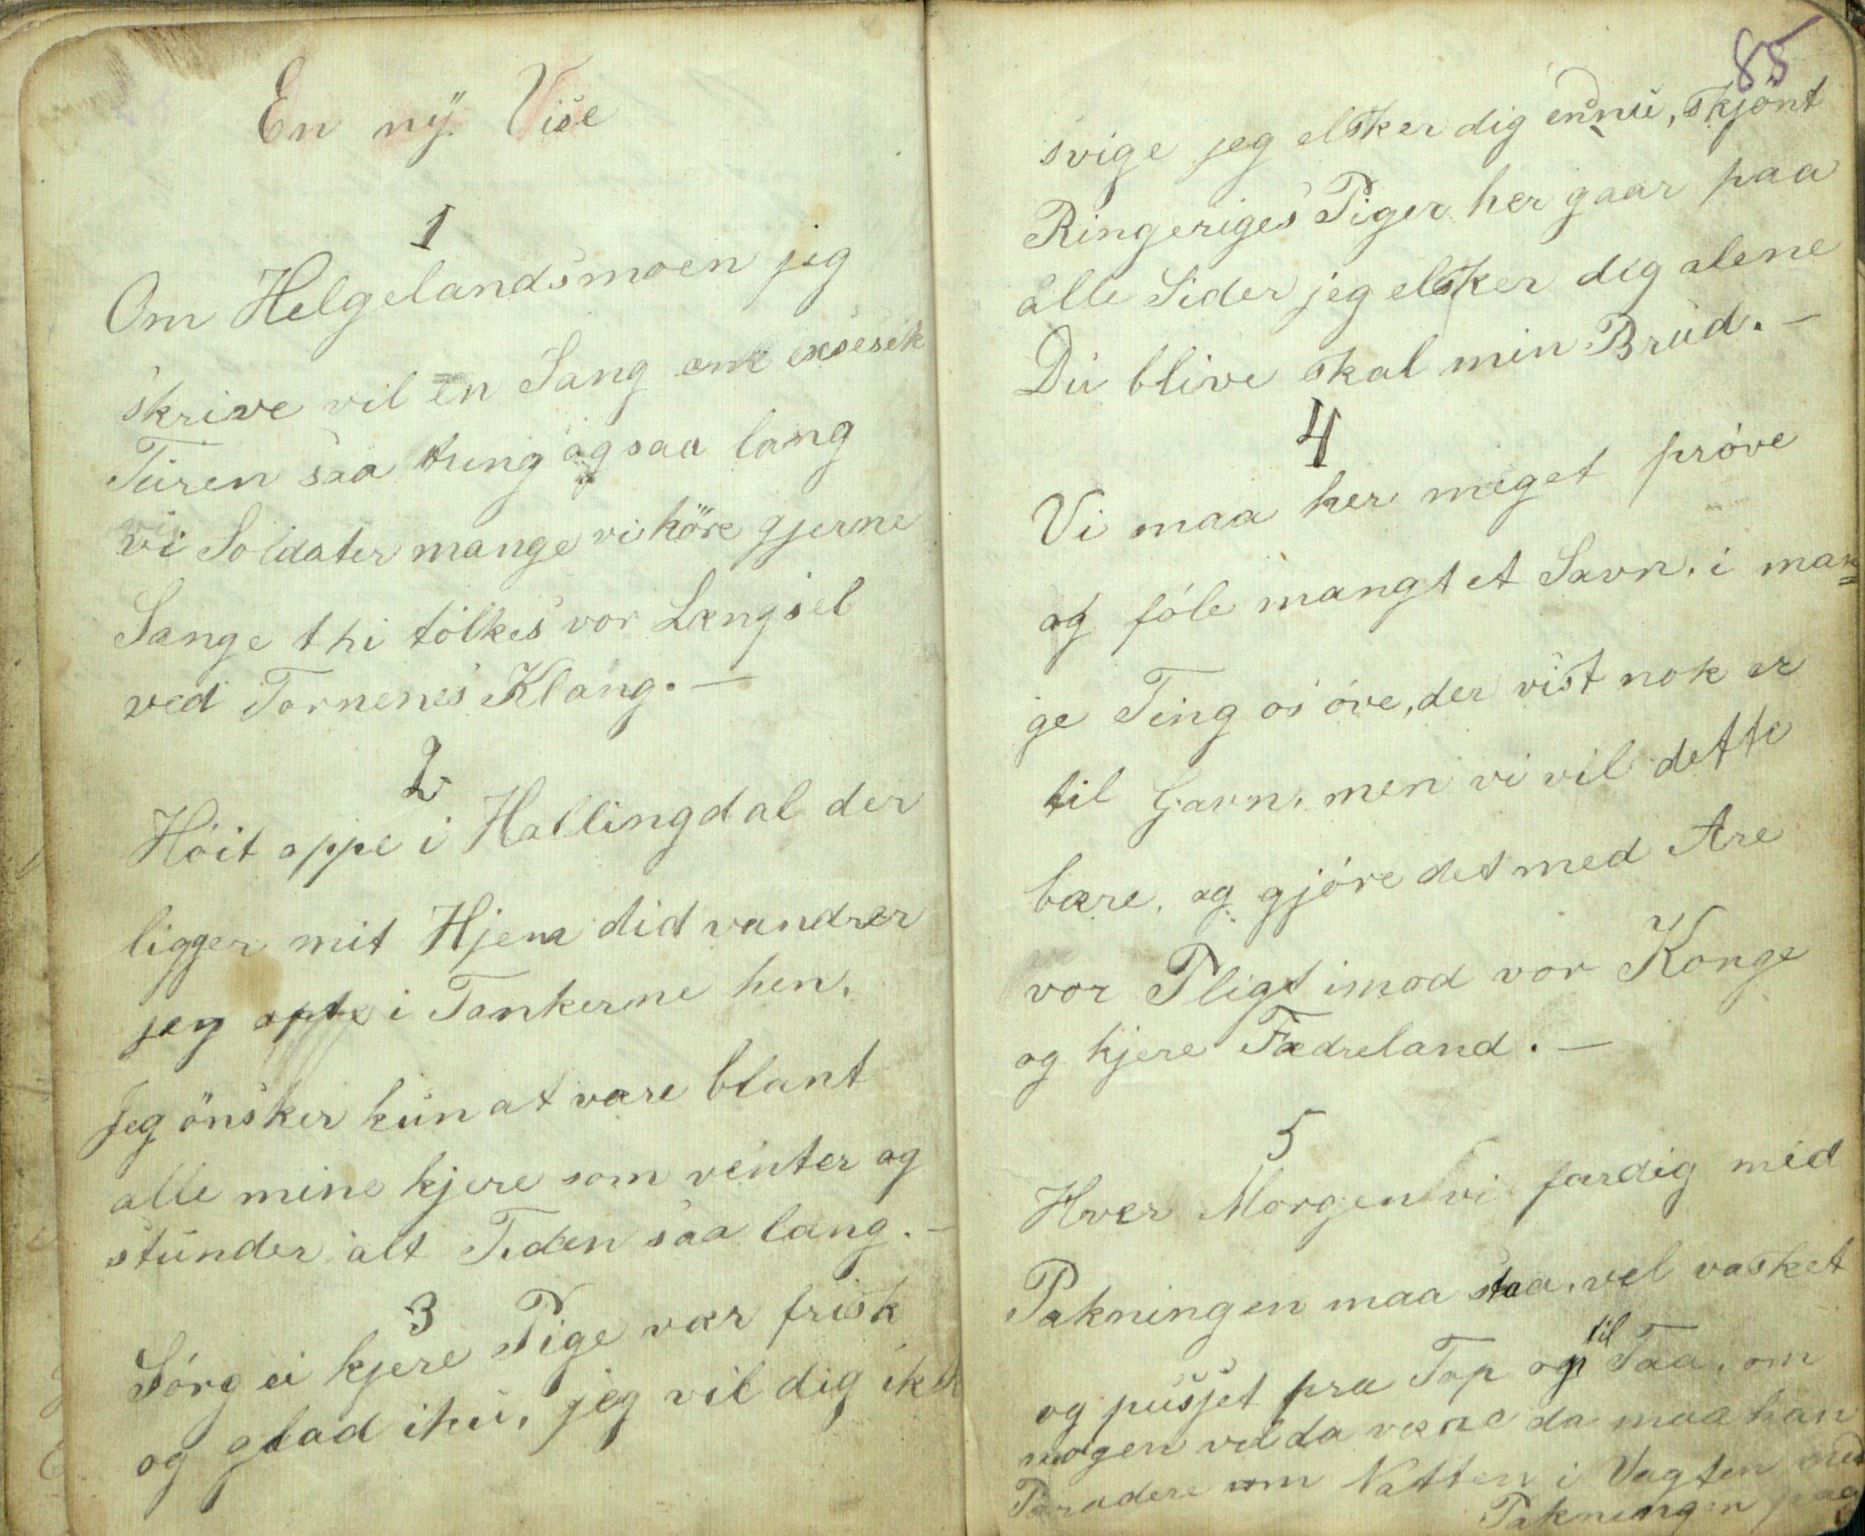 En ny Vise
1
Om Helgelandsmoen jeg
skrive vil en Sang om exsesik
Turen saa tung og saa lang
vi Soldater mange vi høre gjerne
Sange thi tolkes vor Længsel
ved Tornenes Klang. —
2
Høit oppe i Hallingdal der
ligger mit Hjem did vandrer
jeg ofte i Tankerne hen.
Jeg ønsker kun at være blant
alle mine kjere som venter og
stunder alt Tiden saa lang. —
3
Sørg ei kjere Pige vær frisk
og glad ihu, jeg vil dig ikke
85
svige jeg elsker dig ennu, skjønt
Ringeriges Piger her gaar paa
alle Sider jeg elsker dig alene
Du blive skal min Brud. —
4
Vi maa her meget prøve
og føle mangt et Savn. i man=
ge Ting os øve, der vist nok er
til Gavn. men vi vil dette
bære, og gjøre det med Ære
vor Pligt imod vor Konge
og kjere Fædreland. —
5
Hver Morgen vi færdig med
Pakningen maa staa. vel vasket
og pusjet fra Top og til Taa. om
nogen vil da være da maa han
Paradere om Natten i Vagten med
Pakningen paa